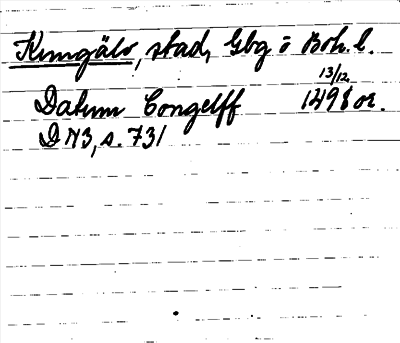 Kungälv, stad, Gbg o Boh. l.
Datum Congelff 13/12 1498 or.
DN3, s. 731